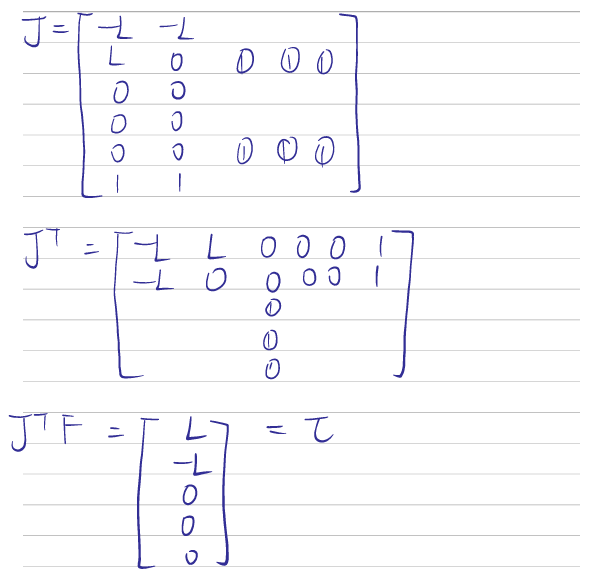 J = [ -L -L
L 0 0 0 0
0 0
0 0
0 0 0 0 0
1 1 ]
J^T = [ -L L 0 0 0 1
-L 0 0 0 0 1
0
0
0 ]
J^T F = [ L = τ
-L
0
0
0 ]